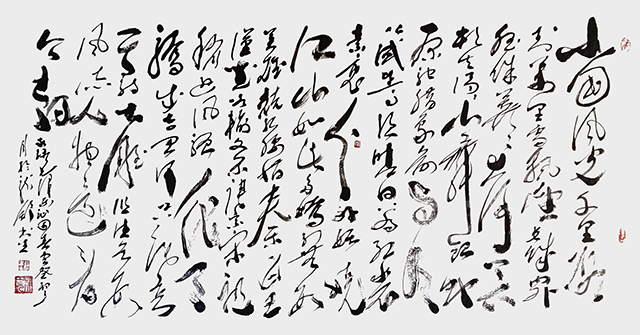 北国风光千里冰
封万里雪飘望长城内外
惟余莽莽大河上下
顿失滔滔山舞银蛇
原驰蜡象欲与天公
试比高须晴日看红装
素裹分外妖娆
江山如此多娇引无数
英雄竞折腰惜秦皇
汉武略输文采唐宗宋祖
稍逊风骚一代天
骄成吉思汗只识弯
弓射大雕俱往矣数
风流人物还看
今朝
毛泽东沁园春雪